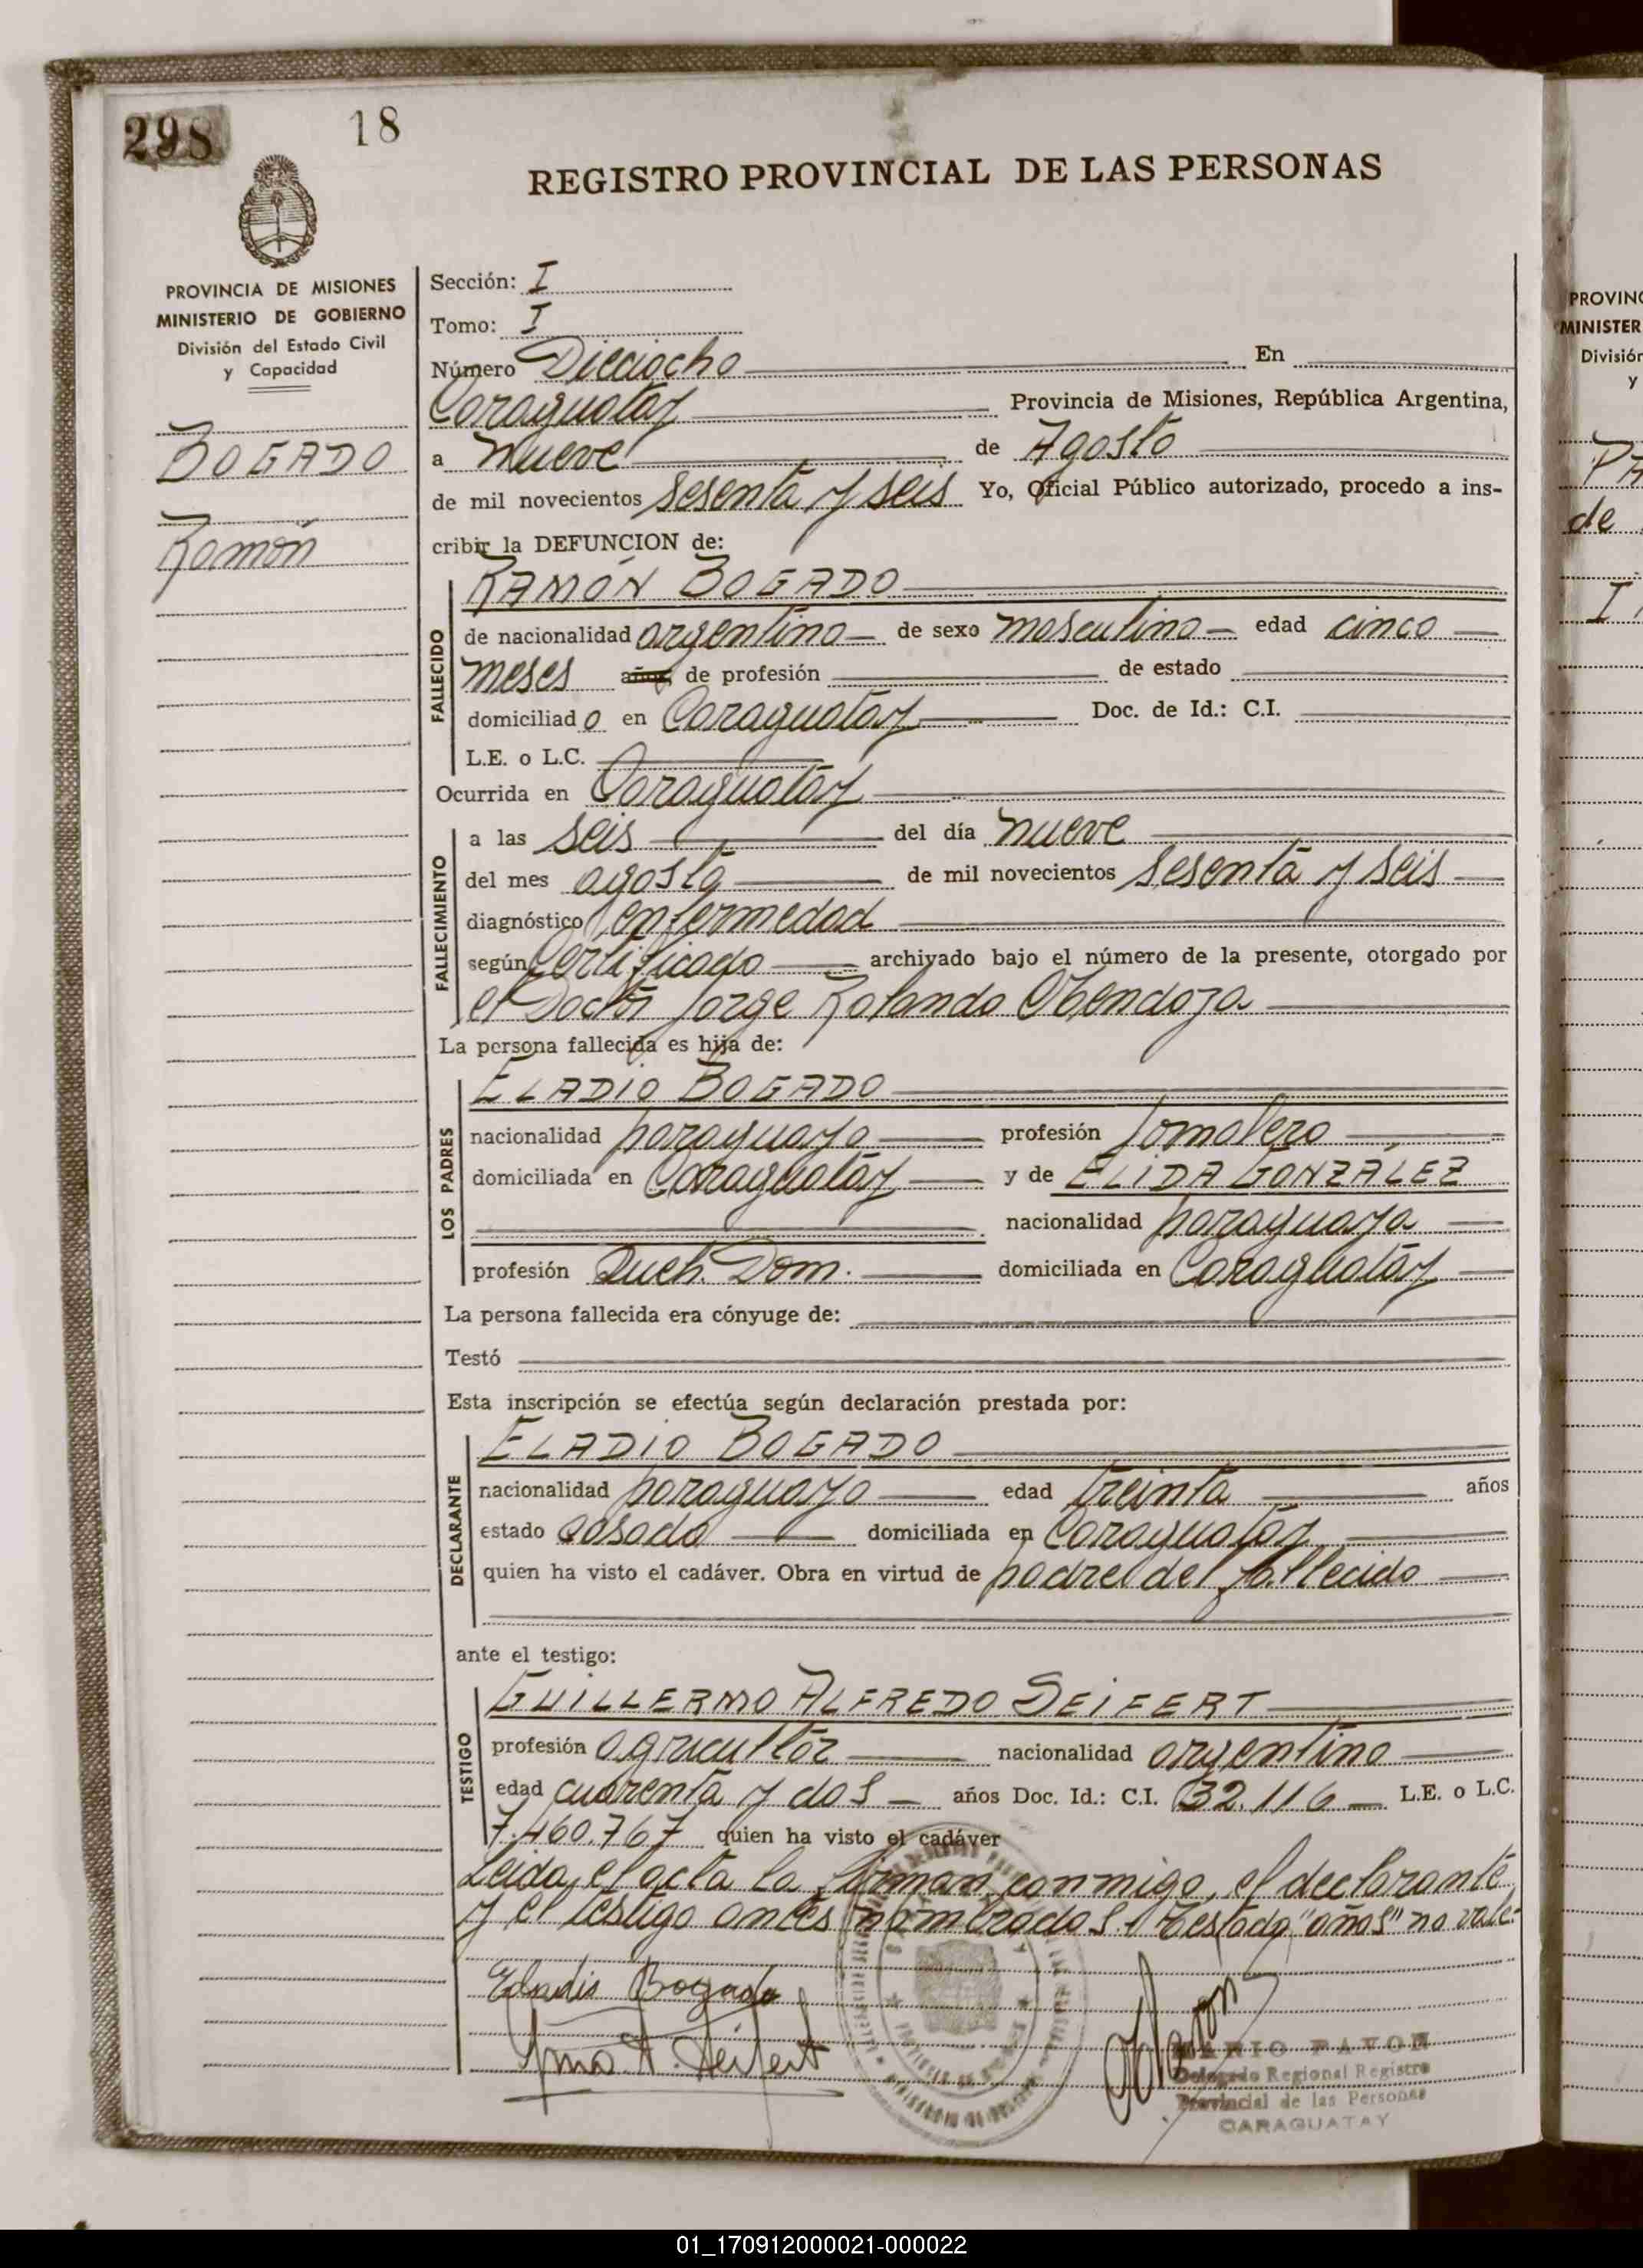 298 18
REGISTRO PROVINCIAL DE LAS PERSONAS
PROVINCIA DE MISIONES
MINISTERIO DE GOBIERNO
División del Estado Civil
y Capacidad
BOGADO
Ramón
Sección: I
Tomo: I
Número Dieciocho En
Caraguatay Provincia de Misiones, República Argentina,
a nueve de Agosto
de mil novecientos sesenta y seis Yo, Oficial Público autorizado, procedo a ins-
cribir la DEFUNCION de:
FALLECIDO
RAMÓN BOGADO
de nacionalidad argentino de sexo masculino edad cinco
meses años, de profesión de estado
domiciliado en Caraguatay Doc. de Id.: C.I.
L.E. o L.C.
Ocurrida en Caraguatay
FALLECIMIENTO
a las seis del día nueve
del mes agosto de mil novecientos sesenta y seis
diagnóstico enfermedad
según Certificado archivado bajo el número de la presente, otorgado por
el Doctor Jorge Rolando Mendoza
La persona fallecida es hija de:
LOS PADRES
ELADIO BOGADO
nacionalidad paraguayo profesión Jornalero
domiciliada en Caraguatay y de ELIDA GONZÁLEZ
nacionalidad paraguaya
profesión Queh. Dom. domiciliada en Caraguatay
La persona fallecida era cónyuge de:
Testó
Esta inscripción se efectúa según declaración prestada por:
DECLARANTE
ELADIO BOGADO
nacionalidad paraguayo edad treinta años
estado casado domiciliada en Caraguatay
quien ha visto el cadáver. Obra en virtud de padre del fallecido
ante el testigo:
TESTIGO
GUILLERMO ALFREDO SEIFERT
profesión agricultor nacionalidad argentino
edad cuarenta y dos años Doc. Id.: C.I. 132.116 L.E. o L.C.
7.460.767 quien ha visto el cadáver
Leida el acta la firman conmigo, el declarante
y el testigo antes nombrados. Testado "años" no vale.
Eladio Bogado
Gmo. A. Seifert
MARIO PAVON
Delegado Regional Registro
Provincial de las Personas
CARAGUATAY
PROVINC
MINISTER
División
y
PA
de
I
01_170912000021-000022